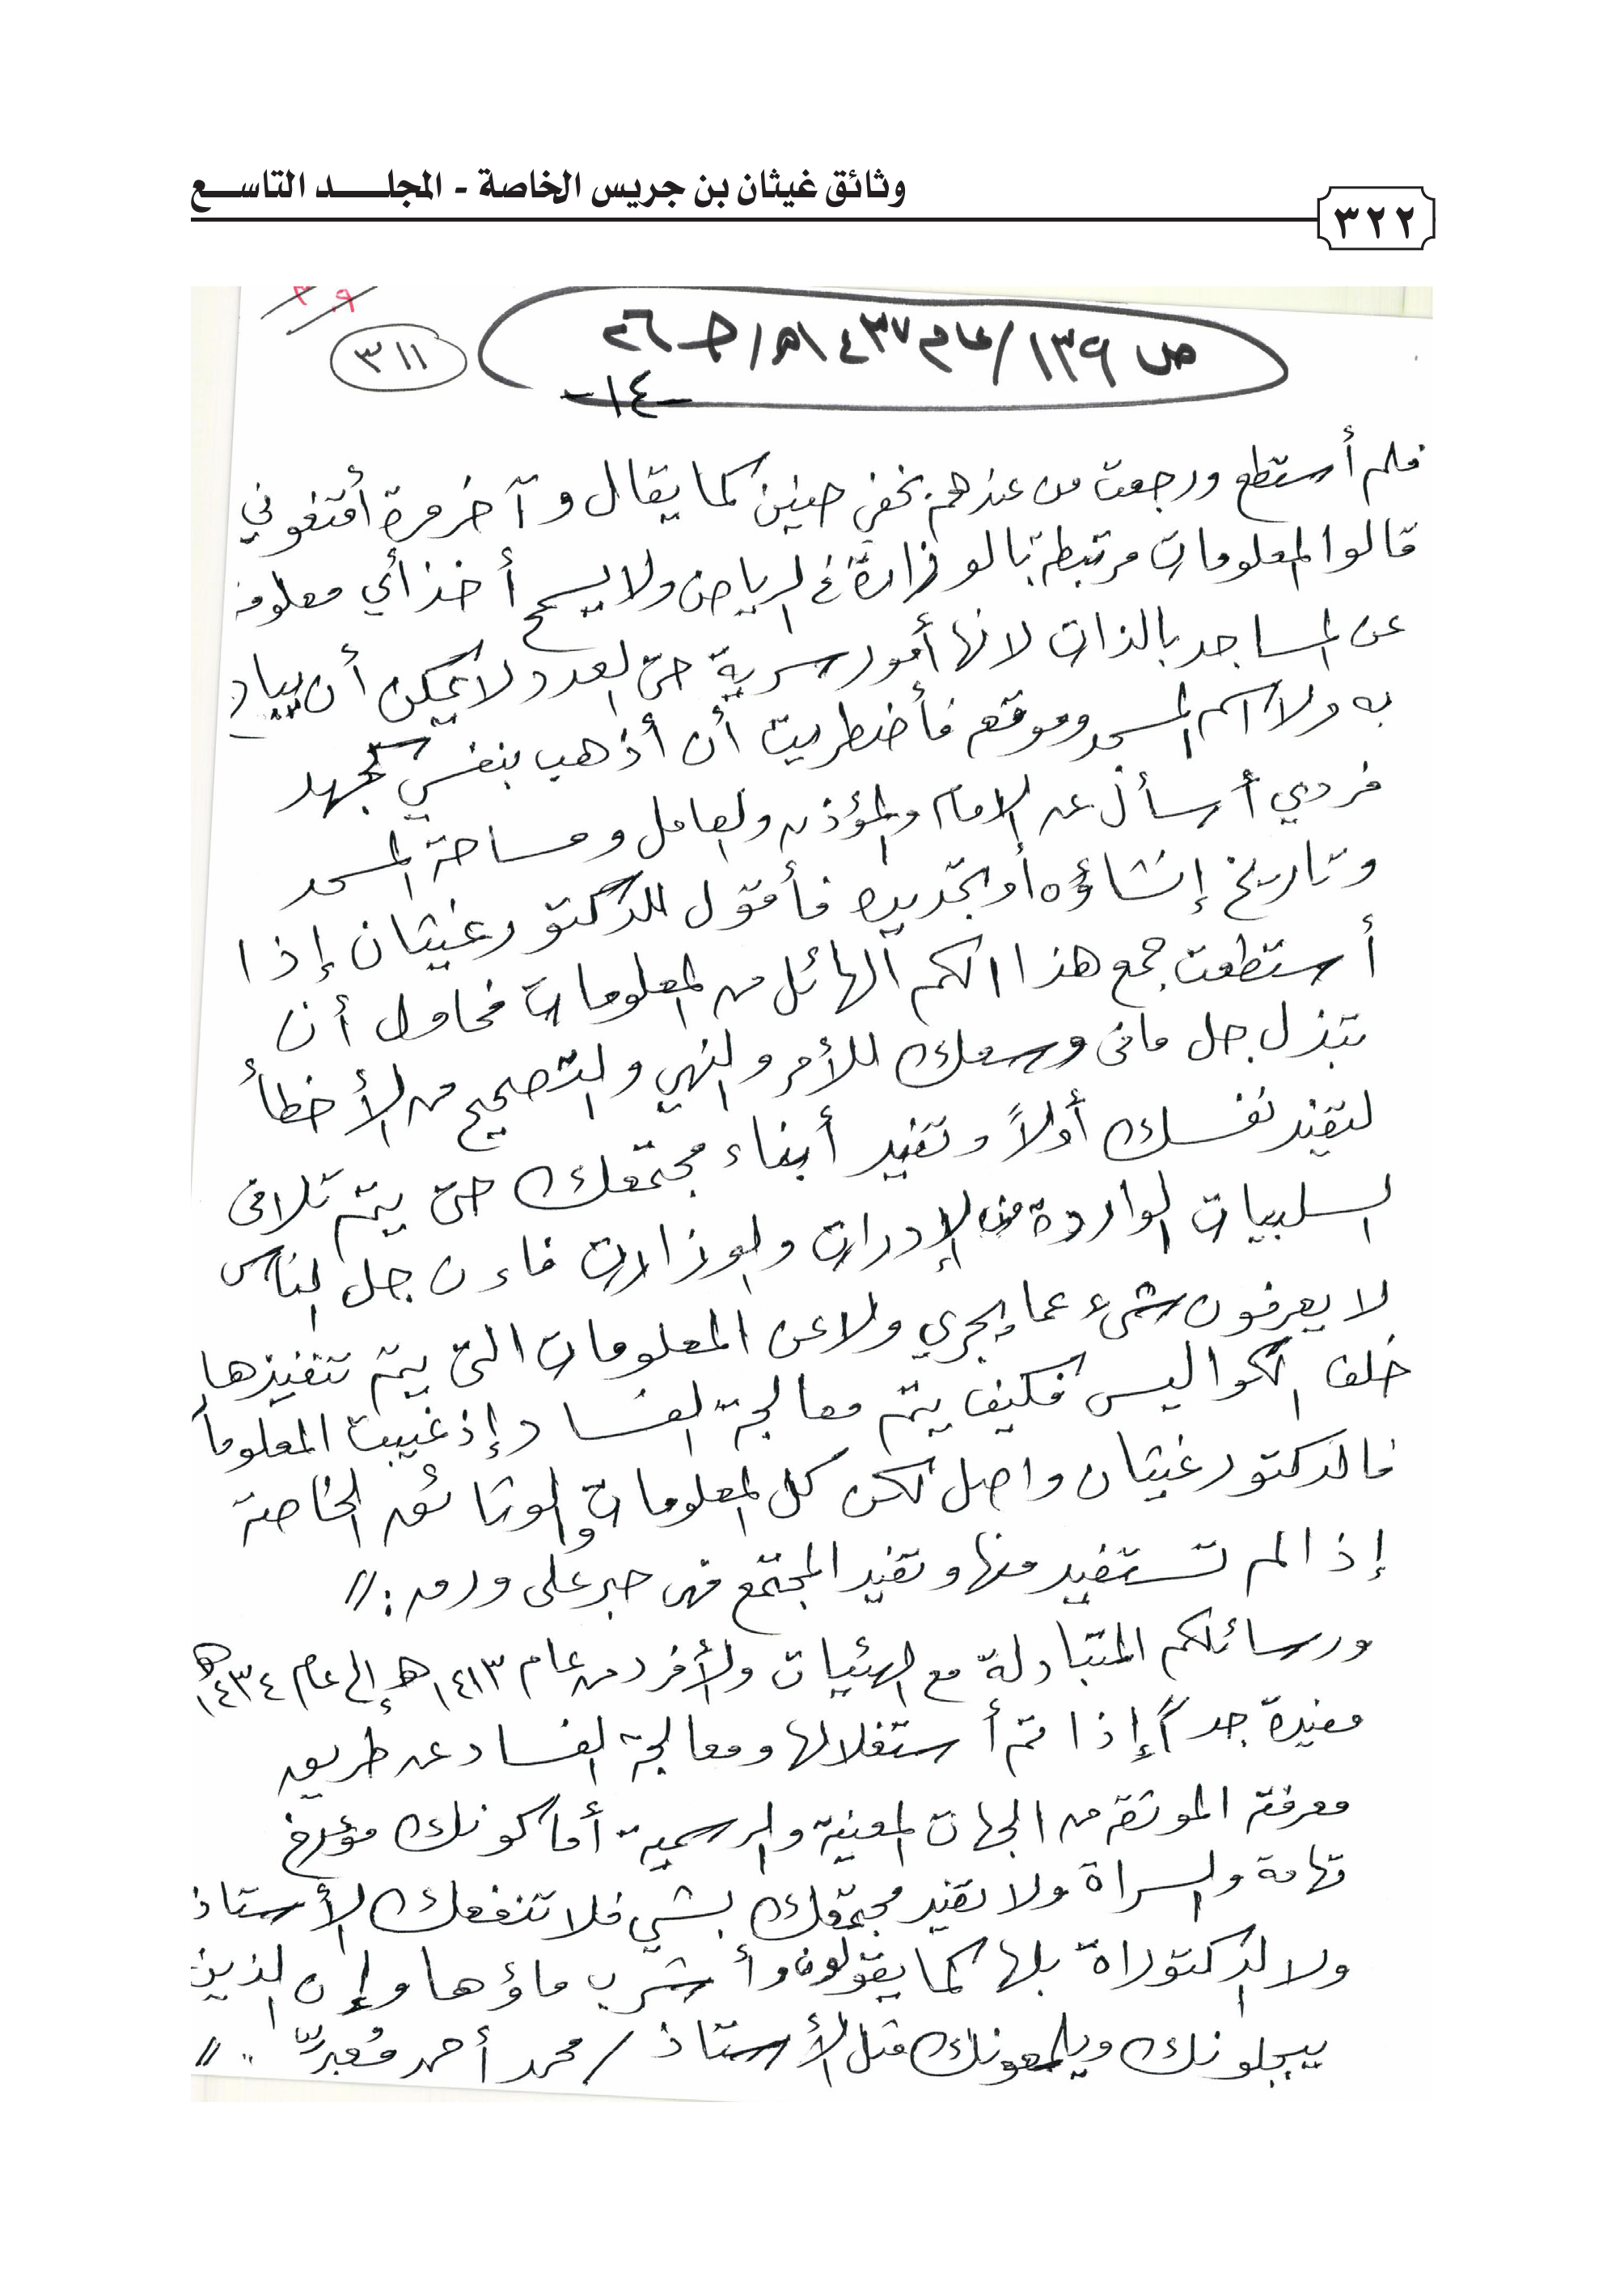 وثائق غيثان بن جريس الخاصة - المجلـــــد التاســـع
٣٢٢
ص ١٣٩/ عام ١٤٣٧هـ/ جـ ٢٦
٣١١
-١٤-
فلم أستطع ورجعت من عندهم بخفي حنين كما يقال وآخر مرة أقنعوني
قالوا المعلومات مرتبطة بالوزارة في الرياض ولا يسمح أخذ أي معلومة
عن المساجد بالذات لانها أمور سرية حتى العدد لا يمكن أن
به ولا اسم المسجد وموقعه فأضطريت أن أذهب بنفسي كجهد
فردي أسأل عن الامام والمؤذن والعامل ومساحة المسجد
وتاريخ إنشاؤه أو تجديده فأقول للدكتور غيثان إذا
أستطعت جمع هذا الكم الهائل من المعلومات فحاول أن
تبذل جل مافى وسعك للأمر والنهي والتصحيح من الأخطأ
لتفيد نفسك أولاً وتفيد أبناء مجتمعك حتى يتم تلافى
السلبيات الواردة من الإدرات والوزارات فاءن جل الناس
لا يعرفون شىء عما يجري ولا عن المعلومات التى يتم تنفيذها
خلف الكواليس فكيف يتم معالجة الفساد وإذ غيبت المعلوما
فالدكتور غيثان واصل لكن كل المعلومات والوثائق الخاصة
إذا لم تستفيد منها وتفيد المجتمع فهى حبر على ورق : //
ورسائلكم المتبادلة مع الهئيات والأفرد من عام ١٤١٣هـ إلى عام ١٤٣٤هـ
مفيدة جداً إذا تم أستغلالها ومعالجة الفساد عن طريق
معرفة الموثقة من الجهات المعنية والرسمية أما كونك مؤرخ
تهامة والسراة ولا تفيد مجتمعك بشي فلا تنفعك الأستاذ
ولا الدكتوراة بلها كما يقولون وأشرب ماؤها وإن الذين
يبجلونك ويلمعونك مثل الأستاذ / محمد أحمد مُعبرّ .. //